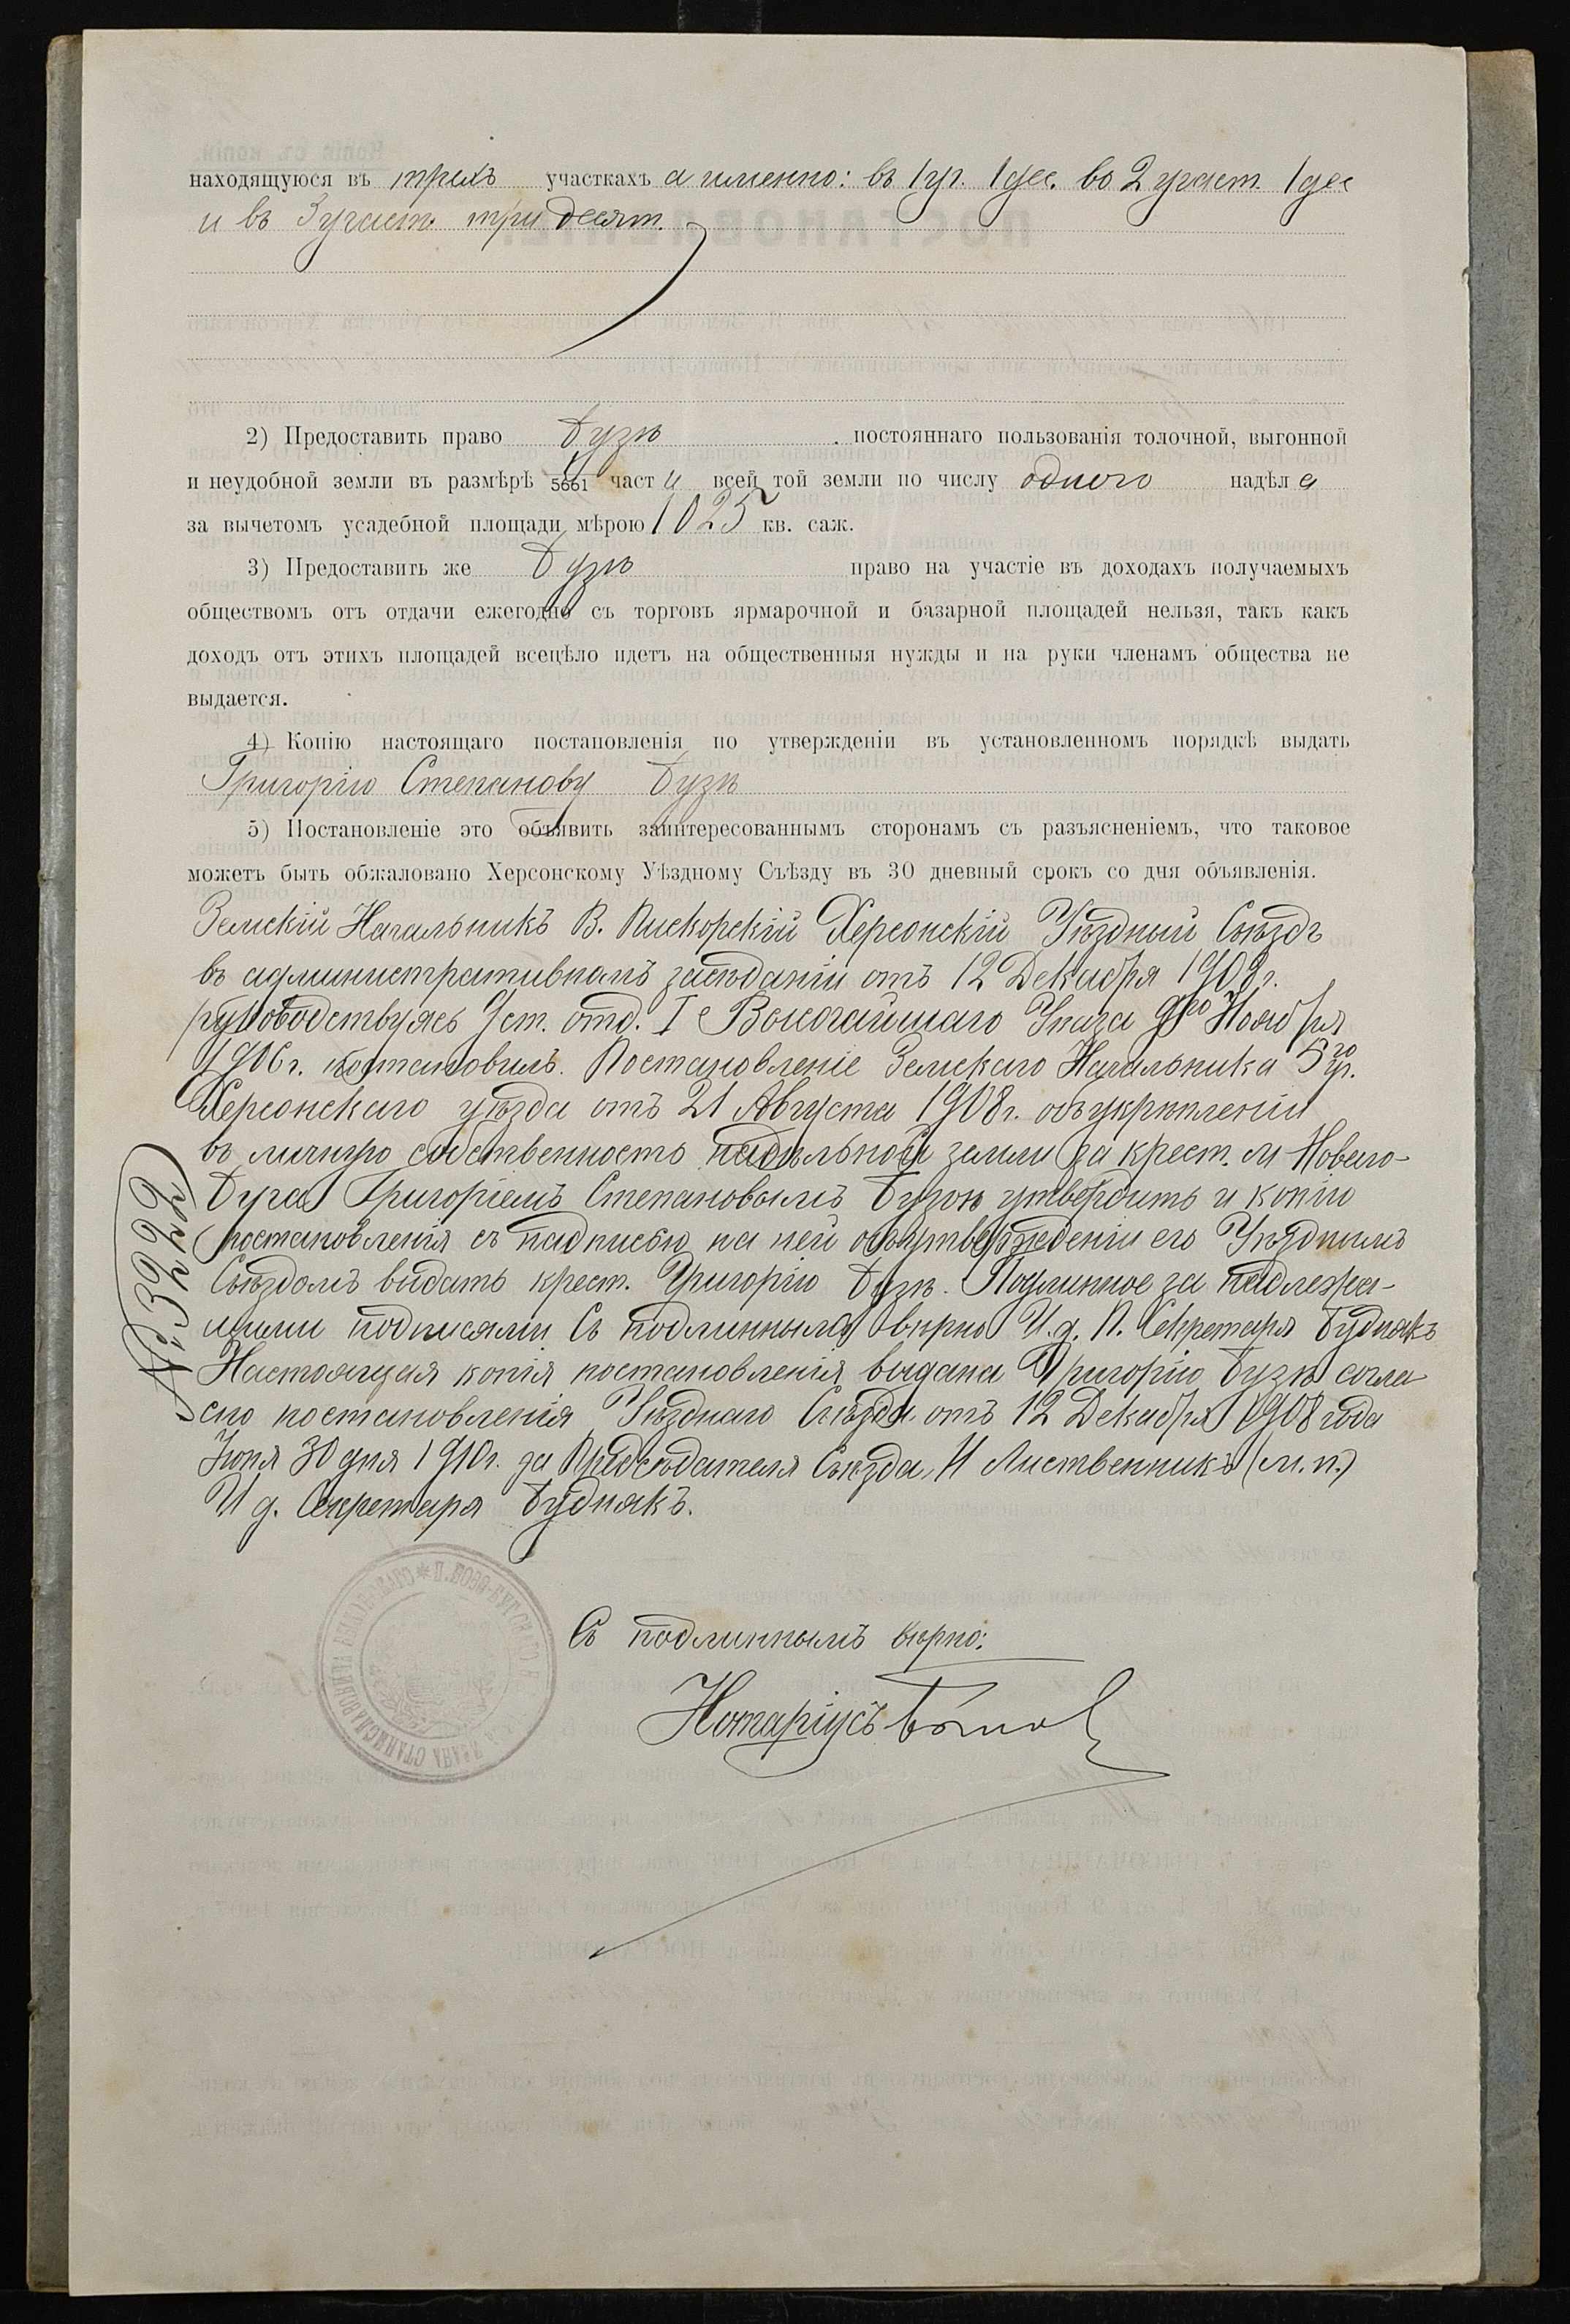 находящуюся въ трехъ участкахъ а именно: въ 1 уч. 1 дес. во 2 участ. 1 дес
и въ 3 участ. три десят.
2) Предоставить право Бузѣ постояннаго пользованія толочной, выгонной
и неудобной земли въ размѣрѣ /5661 части всей той земли по числу одного надѣла
за вычетомъ усадебной площади мѣрою 1025 кв. саж.
3) Предоставить же Бузѣ право на участіе въ доходахъ получаемыхъ
обществомъ отъ отдачи ежегодно съ торговъ ярмарочной и базарной площадей нельзя, такъ какъ
доходъ отъ этихъ площадей всецѣло идетъ на общественныя нужды и на руки членамъ общества не
выдается.
4) Копію настоящаго постановленія по утвержденіи въ установленномъ порядкѣ выдать
Григорію Степанову Бузѣ
5) Постановленіе это объявить заинтересованнымъ сторонамъ съ разъясненіемъ, что таковое
можетъ быть обжаловано Херсонскому Уѣздному Съѣзду въ 30 дневный срокъ со дня объявленія.
Земскій Начальникъ В. Пискорскій Херсонскій Уѣздный Съѣздъ
въ административномъ засѣданіи отъ 12 Декабря 1908 г.
руководствуясь ст. отд. I Высочайшаго Указа 9го Ноября
1906 г. постановилъ. Постановленіе Земскаго Начальника 5го уч.
Херсонскаго уѣзда отъ 21 Августа 1908 г. объ укрѣпленіи
въ личную собственность надѣльной земли за крест. м Новаго-
Буга Григоріемъ Степановымъ Бузою утвердить и копію
постановленія съ надписью на ней объ утвержденіи его Уѣзднымъ
Съѣздомъ выдать крест. Григорію Бузѣ. Подлинное за надлежа-
щими подписями Съ подлиннымъ вѣрно И. д. Секретаря Буднякъ
Настоящая копія постановленія выдана Григорію Бузѣ согла-
сно постановленія Уѣзднаго Съѣзда отъ 12 Декабря 1908 года
Іюня 30 дня 1910 г. за Предсѣдателя Съѣзда, И Лиственникъ (м. п.)
И д. Секретаря Буднякъ.
Съ подлиннымъ вѣрно:
Нотаріусъ